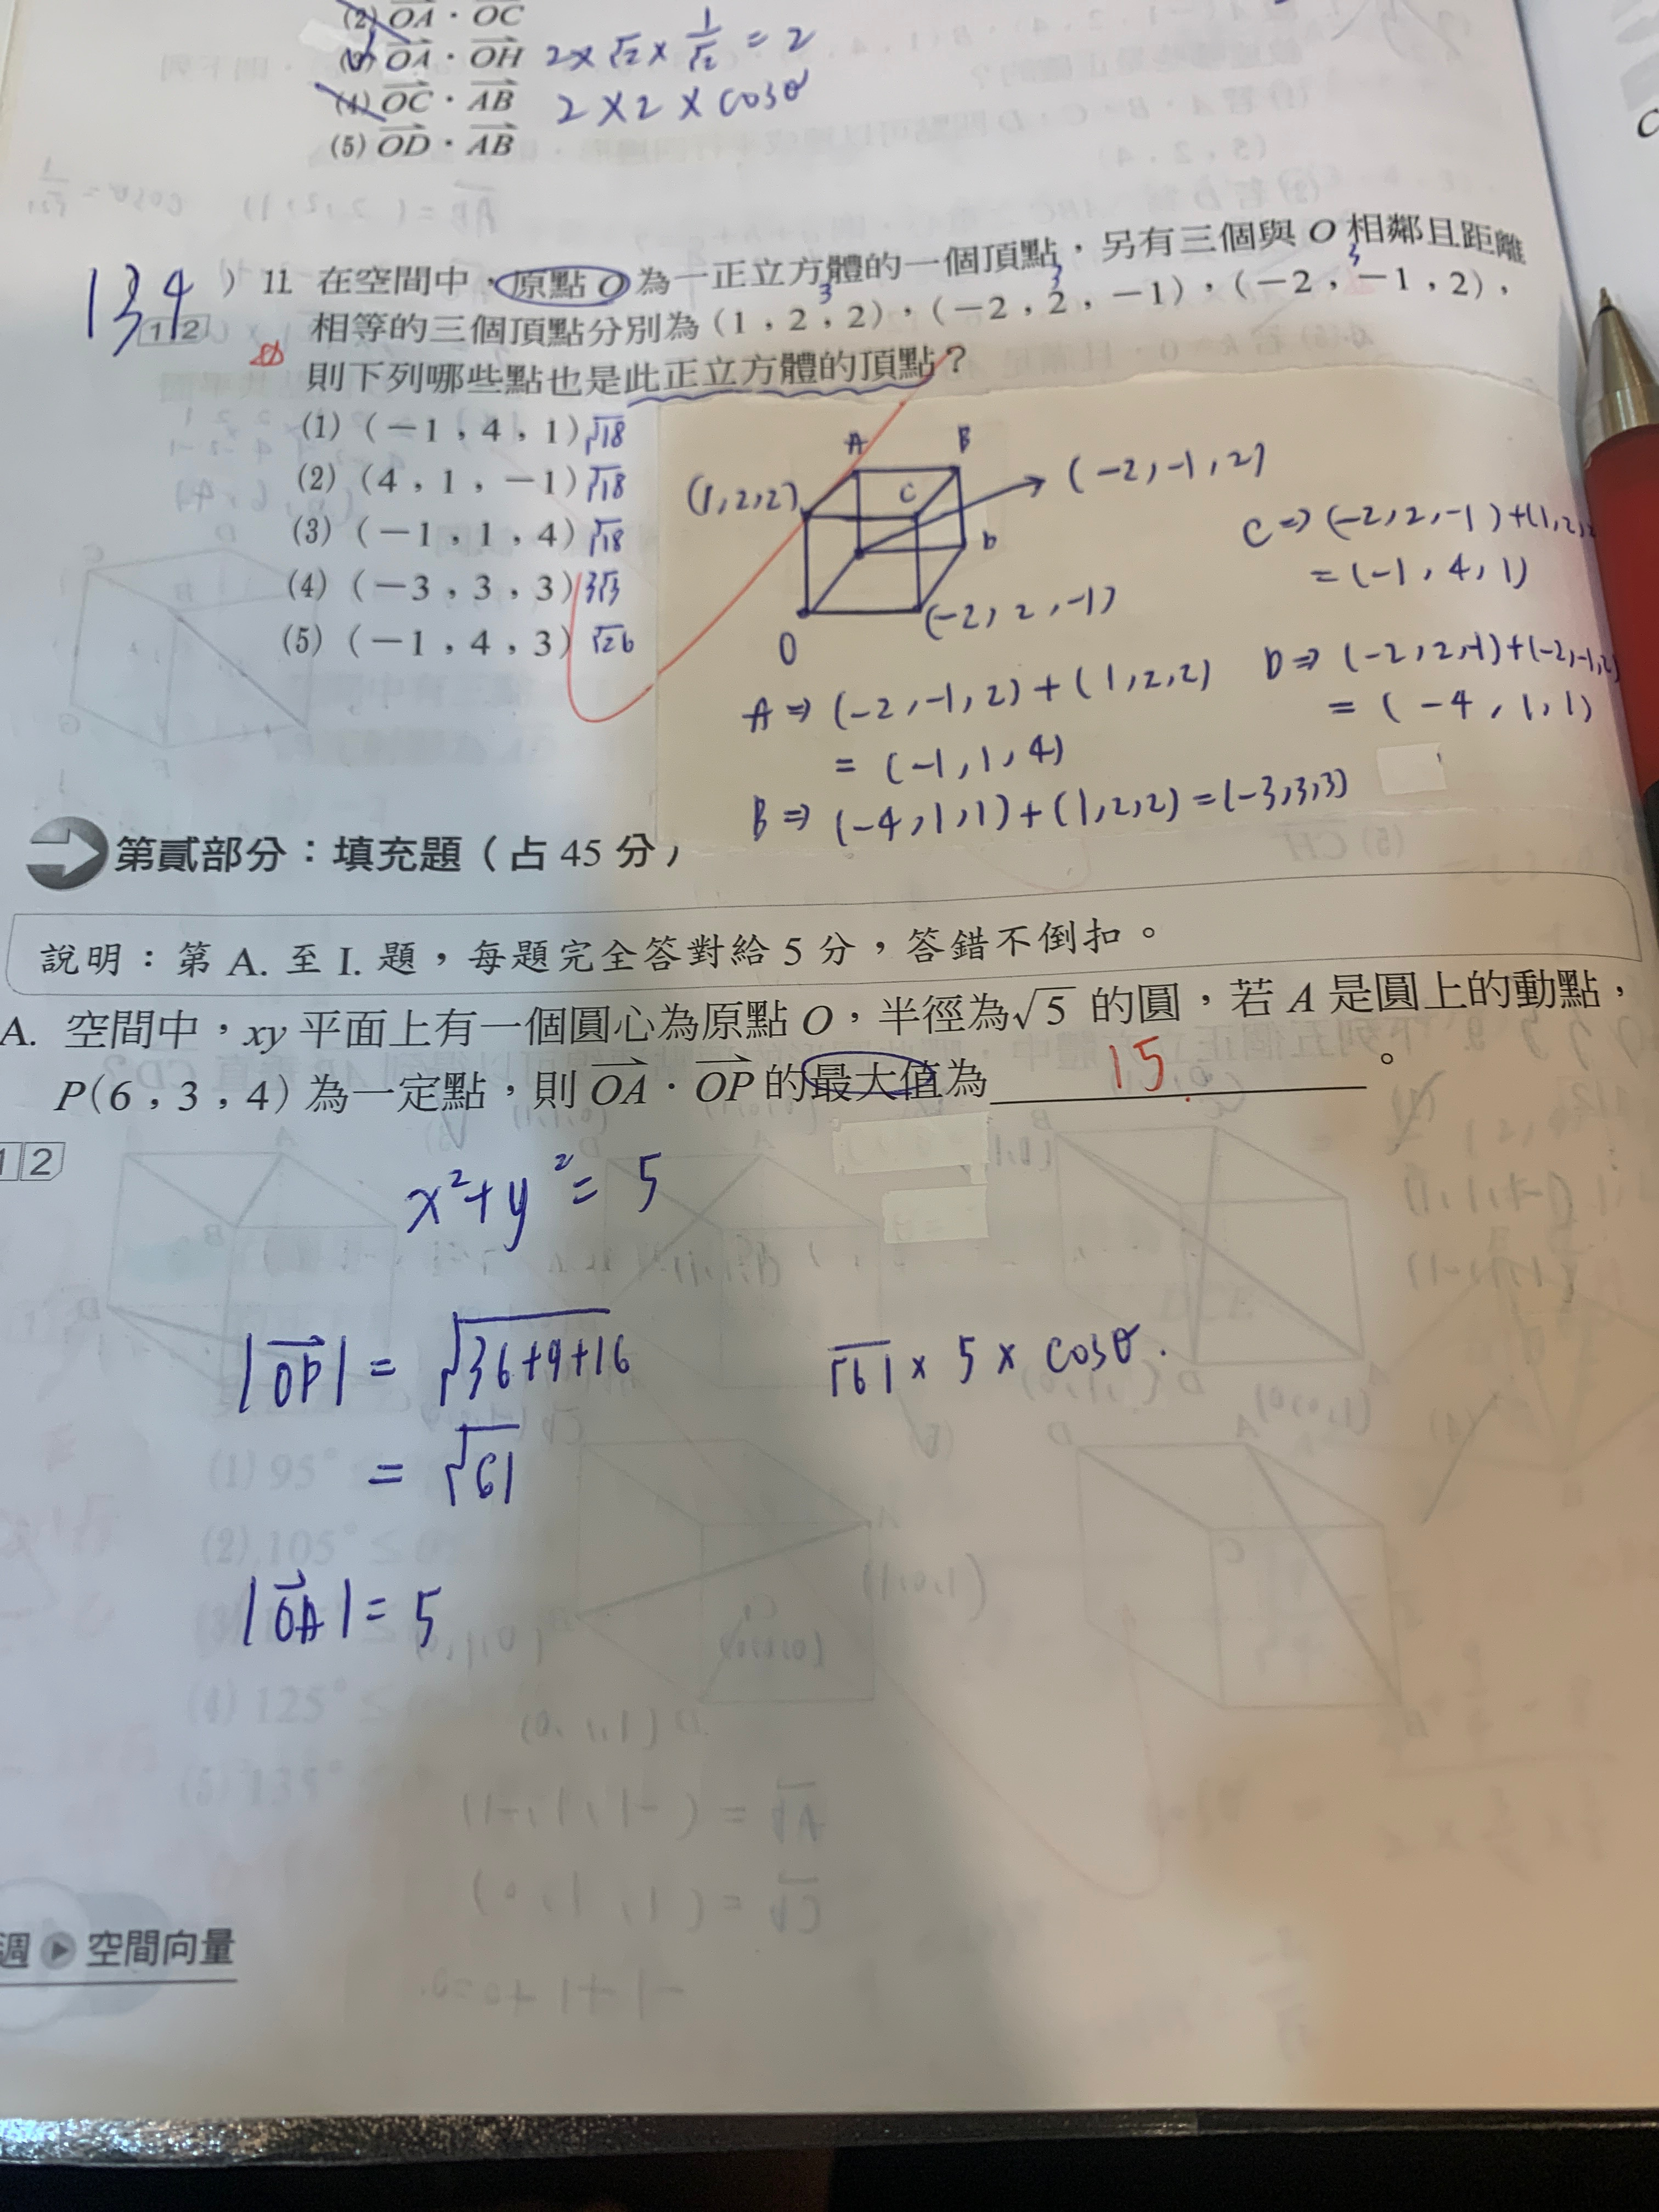 (2) OA · OC
(3) OA · OH 2×√2×1/√2 = 2
(4) OC · AB 2×2×cosθ
(5) OD · AB
134 ) 11. 在空間中，原點 O 為一正立方體的一個頂點，另有三個與 O 相鄰且距離
12 相等的三個頂點分別為 (1，2，2)，(−2，2，−1)，(−2，−1，2)，
3 3 3
則下列哪些點也是此正立方體的頂點？
(1) (−1，4，1) √18
(2) (4，1，−1) √18
(3) (−1，1，4) √18
(4) (−3，3，3) 3√3
(5) (−1，4，3) √26
A B
(1,2,2) C (-2,-1,2)
D
O (-2,2,-1)
C⇒(-2,2,-1)+(1,2,
=(-1,4,1)
A⇒(-2,-1,2)+(1,2,2)
=(-1,1,4)
D⇒(-2,2,-1)+(-2,-1,2)
=(-4,1,1)
B⇒(-4,1,1)+(1,2,2)=(-3,3,3)
第貳部分：填充題（占 45 分）
說明：第 A. 至 I. 題，每題完全答對給 5 分，答錯不倒扣。
A. 空間中，xy 平面上有一個圓心為原點 O，半徑為√5 的圓，若 A 是圓上的動點，
P(6，3，4) 為一定點，則 OA · OP 的最大值為 15 。
12
x²+y²=5
|OP| = √36+9+16
= √61
√61 × 5 × cosθ.
|OA| = 5
週 空間向量